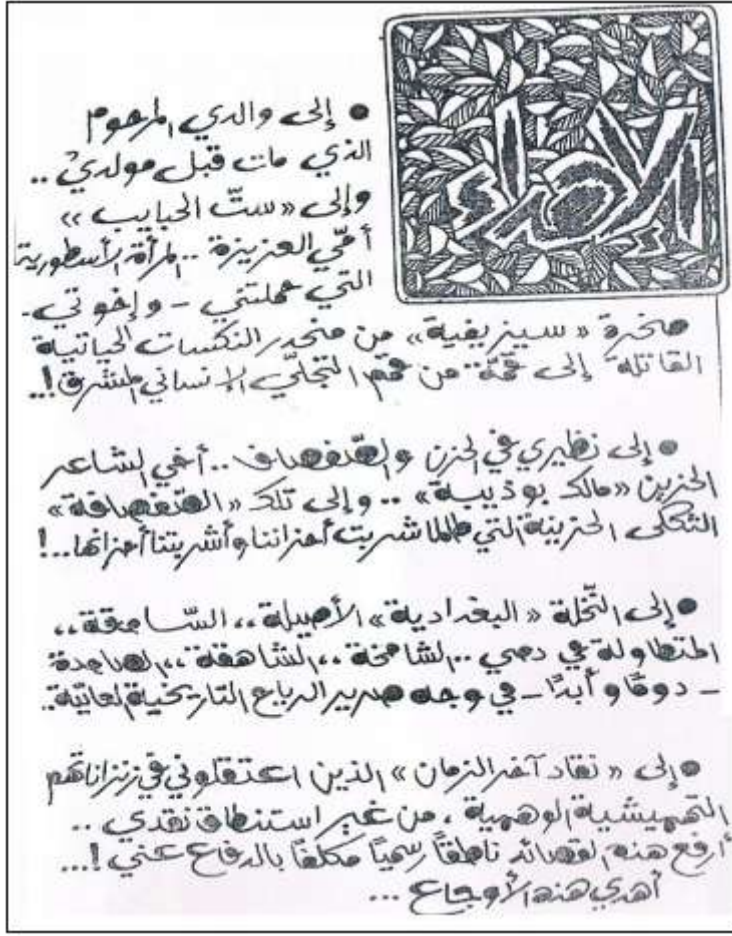 الإهداء
● إلى والدي المرحوم
الذي مات قبل مولدي ..
وإلى «ستّ الحبايب»
أمّي العزيزة .. المرأة الأسطورية
التي حملتني - وإخوتي -
صخرة «سيزيفية» من منحدر النكسات الحياتية
القاتلة إلى قمّة من قمم التجلّي الإنساني المشرق !..
● إلى نظيري في الحزن والصّفصاف .. أخي الشاعر
الحزين «مالك بوذيبة» .. وإلى تلك «الصّفصافة»
الثكلى الحزينة التي طالما شربت أحزاننا وأشربتنا أحزانها ..!
● إلى النّخلة «البغدادية» الأصيلة ،، السّامقة ،،
المتطاولة في دمي .. الشامخة ،، الشاهقة ،، الصامدة
- دومًا وأبدًا - في وجه صرير الرياح التاريخية العاتية ..
● إلى «نقاد آخر الزمان» الذين اعتقلوني في زنزاناتهم
التهميشية الوهمية ، من غير استنطاق نقدي ..
أرفع هذه القصائد ناطقًا رسميًا مكلفًا بالدفاع عني !...
أهدي هذه الأوجاع ...